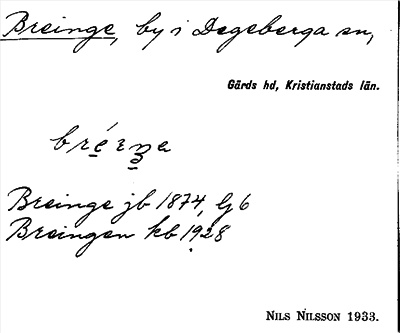 Breinge, by i Degeberga sn,
Gärds hd, Kristianstads län.
Breinge jb 1874, Lj 6
Breingen kb 1928
NILS NILSSON 1933.